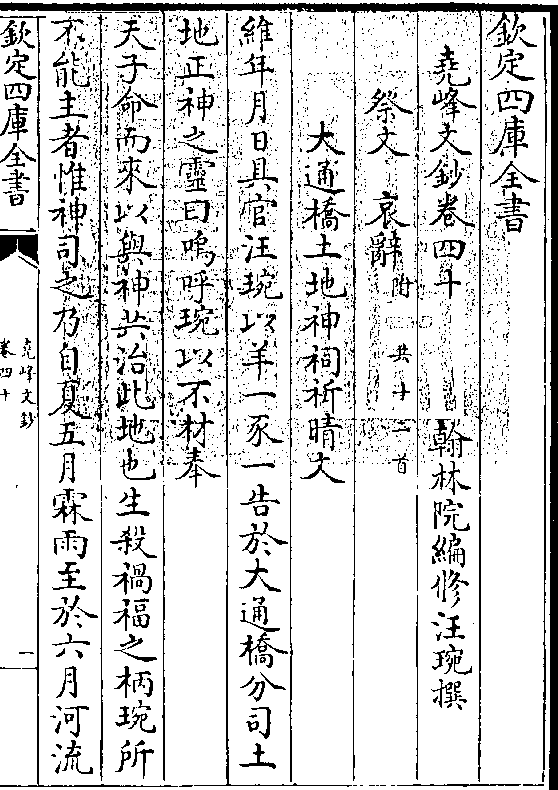 欽定四庫全書
堯峰文鈔卷四十 翰林院編修汪琬撰
祭文 哀辭附 共十二首
大通橋土地神祠祈晴文
維年月日具官汪琬以羊一豕一告於大通橋分司土
地正神之靈曰嗚呼琬以不材奉
天子命而來以與神共治此地也生殺禍福之柄琬所
不能主者惟神司之乃自夏五月霖雨至於六月河流
欽定四庫全書
堯峰文鈔
卷四十
一